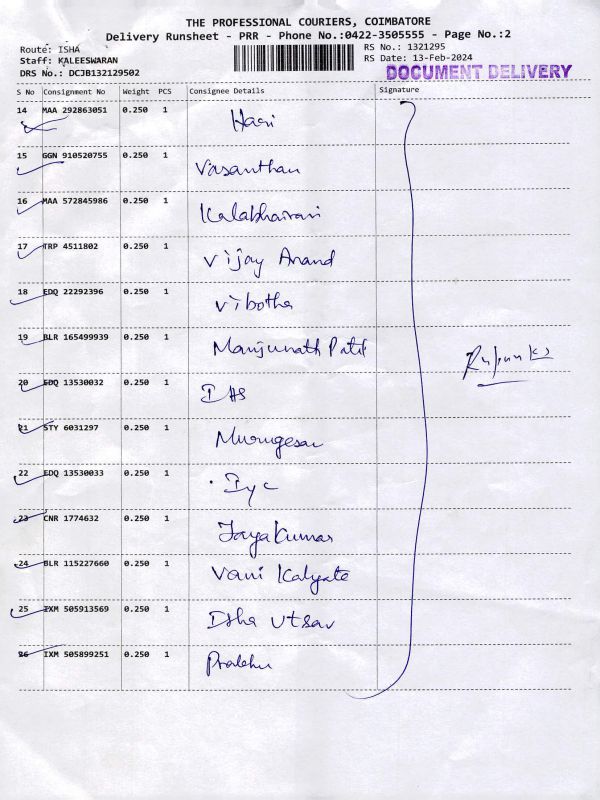 THE PROFESSIONAL COURIERS, COIMBATORE
Delivery Runsheet - PRR - Phone No.:0422-3505555 - Page No.:2
Route: ISHA
RS No.: 1321295
Staff: KALEESWARAN
RS Date: 13-Feb-2024
DRS No.: DCJB132129502
DOCUMENT DELIVERY
S No Consignment No Weight PCS Consignee Details Signature
14 MAA 292863051 0.250 1 Hari
15 GGN 910520755 0.250 1 Vasanthan
16 MAA 572845986 0.250 1 Kalabhairavi
17 TRP 4511802 0.250 1 Vijay Anand
18 EDQ 22292396 0.250 1 Vibotha
19 BLR 165499939 0.250 1 Manjunath Patil
20 EDQ 13530032 0.250 1 IHS
21 STY 6031297 0.250 1 Murugesan
22 EDQ 13530033 0.250 1 Iyc
23 CNR 1774632 0.250 1 JayaKumar
24 BLR 115227660 0.250 1 Vani Kalyate
25 IXM 505913569 0.250 1 Isha Utsav
26 IXM 505899251 0.250 1 Prabhu